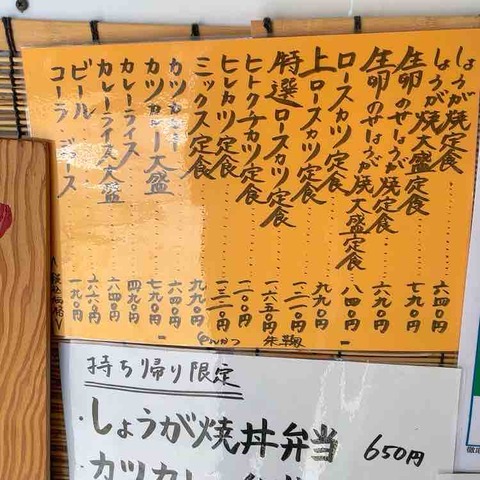 しょうが焼定食 六四〇円
しょうが焼大盛定食 七九〇円
生卵のせしょうが焼定食 六九〇円
生卵のせしょうが焼大盛定食 八四〇円
ロースカツ定食 九九〇円
上ロースカツ定食 一二一〇円
特選ロースカツ定食 一六五〇円
ヒトクチカツ定食
ヒレカツ定食 一三二〇円
ミックス定食 九九〇円
カツカレー 六四〇円
カツカレー大盛 七九〇円
カレーライス 四九〇円
カレーライス大盛 六四〇円
ビール
コーラ・ジュース 一九〇円
<税込価格>
とんかつ
持ち帰り限定
・しょうが焼丼弁当 650円